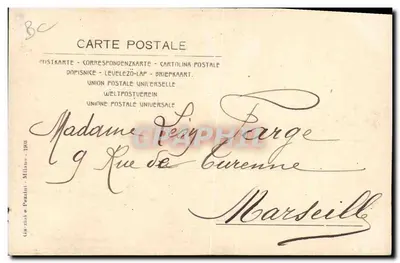 BC
CARTE POSTALE
POSTKARTE - CORRESPONDENZKARTE - CARTOLINA POSTALE
DOPISNICE - LEVELEZŐ-LAP - BRIEFKAART.
UNION POSTALE UNIVERSELLE
WELTPOSTVEREIN
UNIONE POSTALE UNIVERSALE
Madame Farge
9 Rue de Turenne
Marseille
Milano - 1903